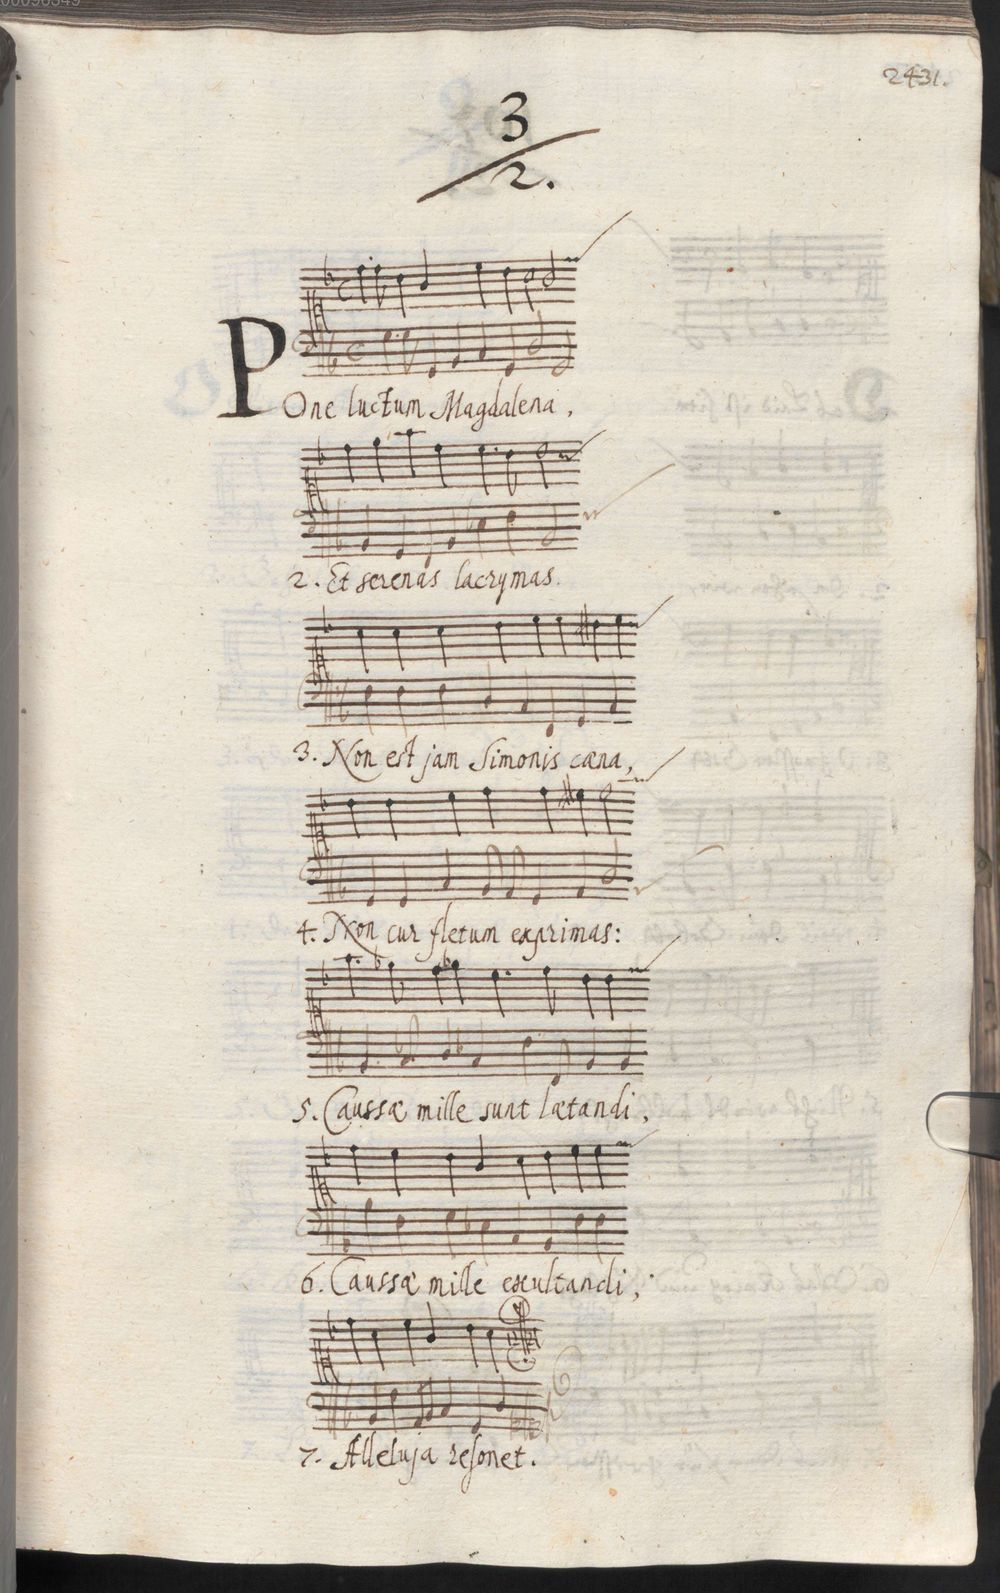 00090349
2431.
3
2.
POne luctum Magdalena,
2. Et serenas lacrymas.
3. Non est jam Simonis cæna,
4. Non cur fletum exprimas:
5. Caussæ mille sunt lætandi,
6. Caussæ mille exultandi,
7. Alleluja resonet.